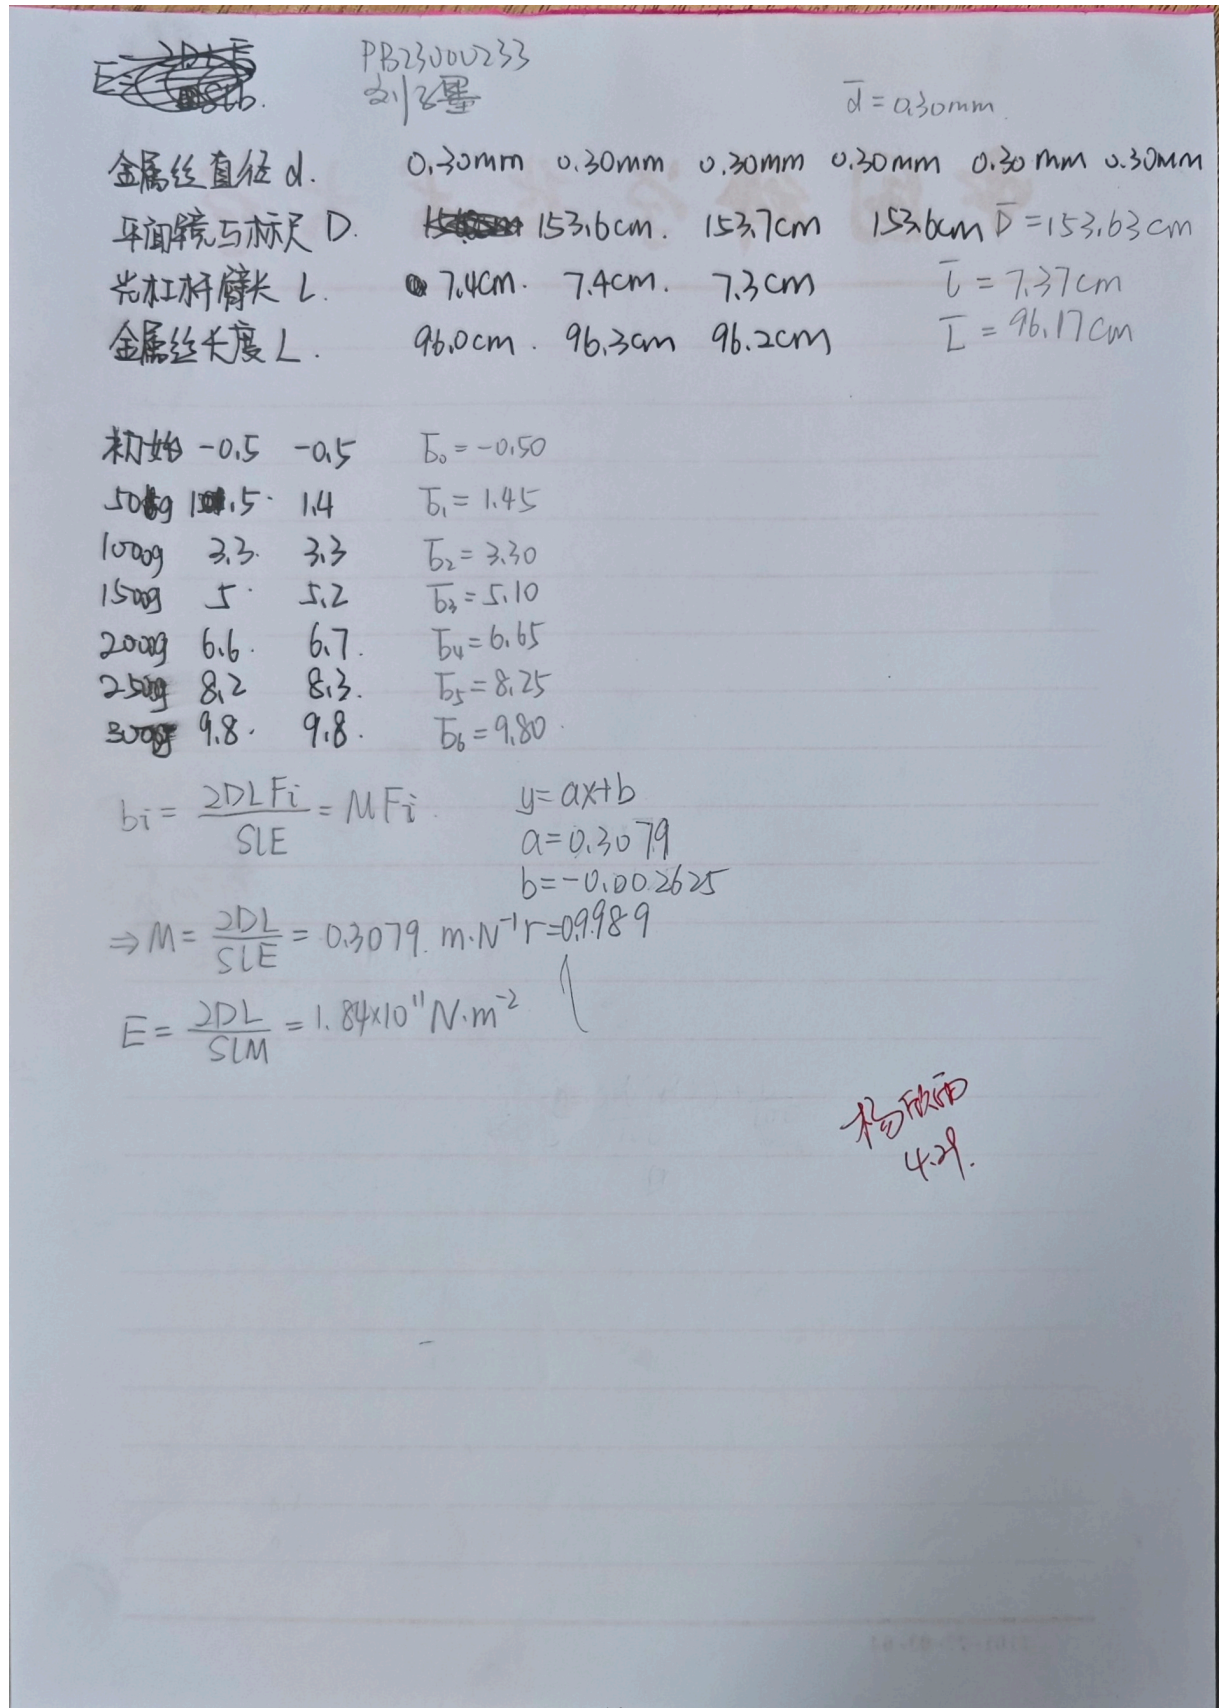 PB23000233
刘
d̄ = 0.30mm
金属丝直径 d. 0.30mm 0.30mm 0.30mm 0.30mm 0.30mm 0.30mm
平面镜与标尺 D. 153.6cm. 153.7cm 153.6cm D̄ = 153.63cm
光杠杆臂长 l. 7.4cm. 7.4cm. 7.3cm l̄ = 7.37cm
金属丝长度 L. 96.0cm. 96.3cm 96.2cm L̄ = 96.17cm
初始 -0.5 -0.5 b̄₀ = -0.50
500g 1.5 1.4 b̄₁ = 1.45
1000g 3.3. 3.3 b̄₂ = 3.30
1500g 5 5.2 b̄₃ = 5.10
2000g 6.6. 6.7. b̄₄ = 6.65
2500g 8.2 8.3. b̄₅ = 8.25
3000g 9.8. 9.8. b̄₆ = 9.80
bi = 2DLFi/SlE = MFi y=ax+b
a=0.3079
b=-0.002625
⇒ M = 2DL/SlE = 0.3079 m·N⁻¹ r=0.9989
E = 2DL/SlM = 1.84×10¹¹ N·m⁻²
杨欣雨
4.29.